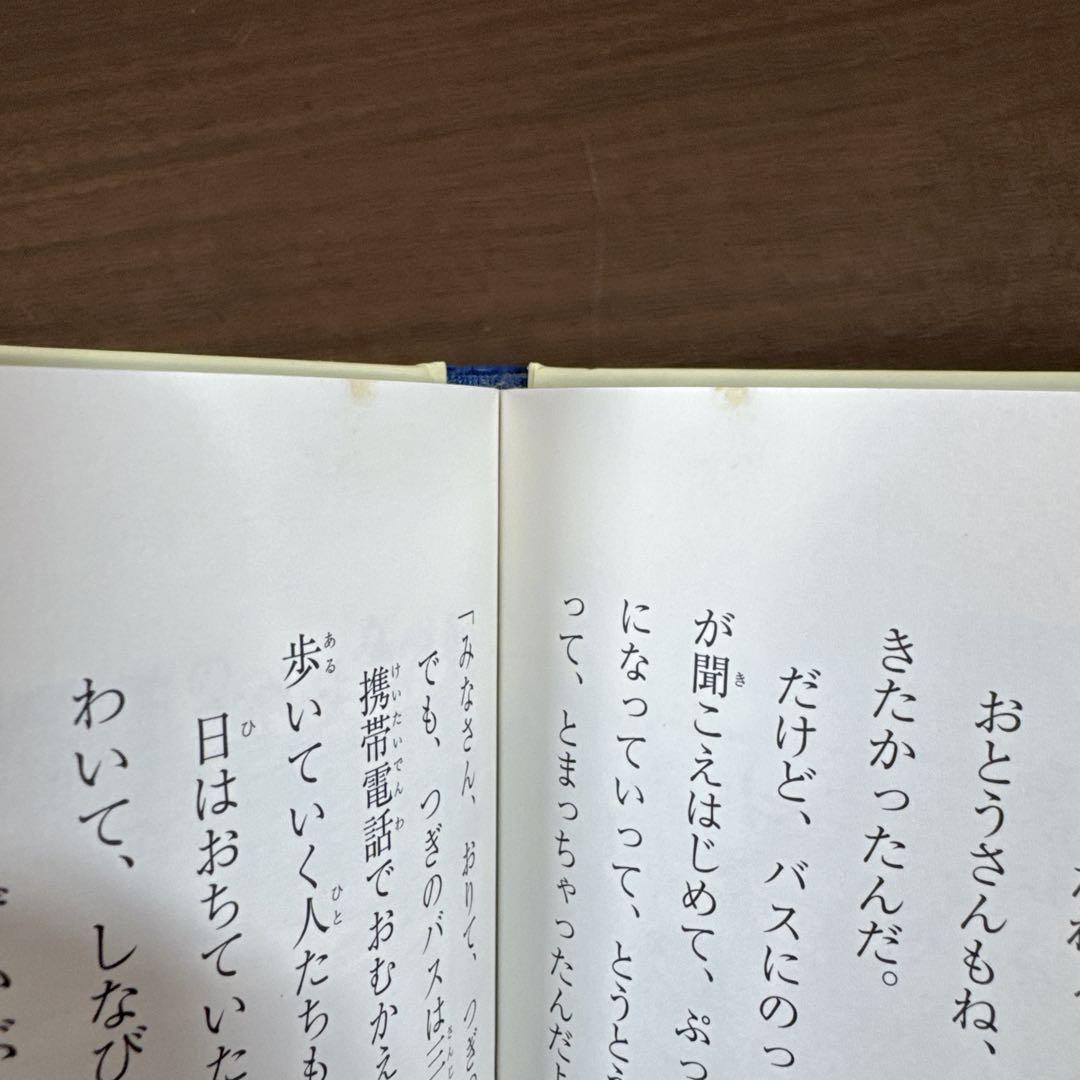 おとうさんもね、
きたかったんだ。
だけど、バスにのっ
が聞こえはじめて、ぷっ
になっていって、とうとう
って、とまっちゃったんだよ
「みなさん、おりて、つぎ
でも、つぎのバスは三
携帯電話でおむかえ
歩いていく人たちも
日はおちていた
わいて、しなび